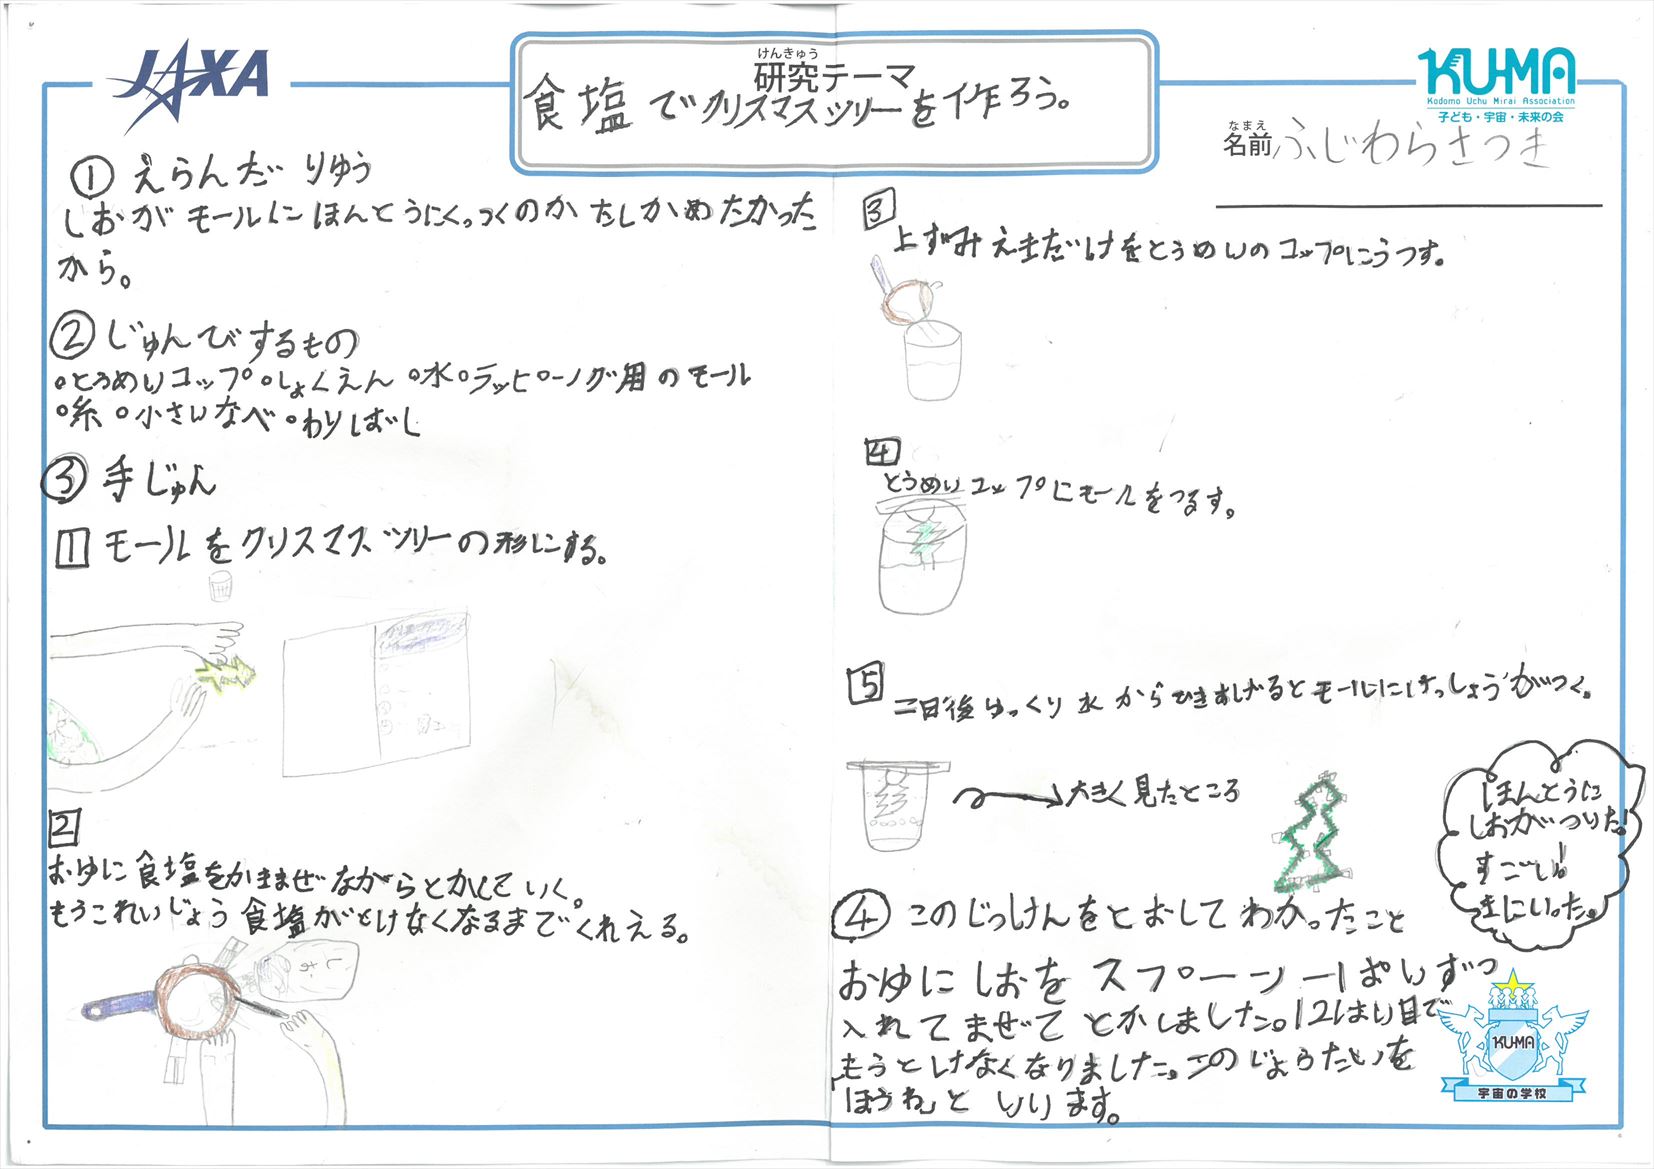 JAXA
けんきゅう
研究テーマ
食塩でクリスマスツリーを作ろう。
KU-MA
Kodomo Uchu Mirai Association
子ども・宇宙・未来の会
なまえ
名前 ふじわらさつき
① えらんだ りゅう
しおがモールにほんとうにくっつくのかたしかめたかった
から。
② じゅんびするもの
・とうめいコップ・しょくえん・水・ラッピング用のモール
・糸・小さいなべ・わりばし
③ 手じゅん
1 モールをクリスマスツリーの形にする。
2
おゆに食塩をかきまぜながらとかしていく。
もうこれいじょう食塩がとけなくなるまでくれえる。
しお
3
上ずみえきだけをとうめいのコップにうつす。
4
とうめいコップにモールをつるす。
5
二日後ゆっくり水からひきあげるとモールにけっしょうがつく。
大きく見たところ
ほんとうに
しおがついた!
すごい!
きにいった。
④ このじっけんをとおしてわかったこと
おゆにしおをスプーン一ぱいずつ
入れてまぜてとかしました。12はい目で
もうとけなくなりました。このじょうたいを
「ほうわ」といいます。
KUMA
宇宙の学校